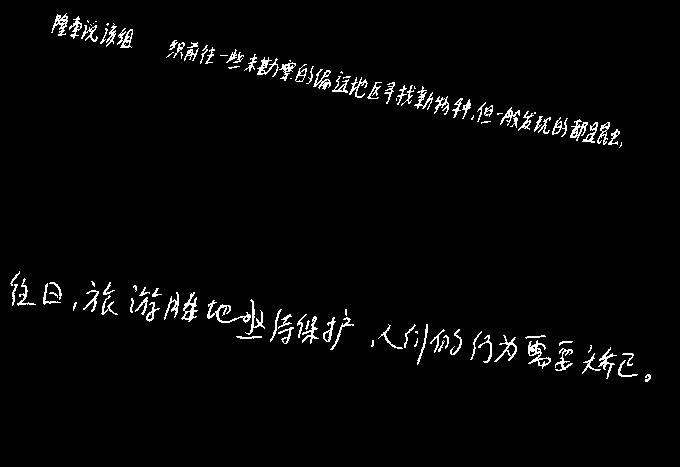 隆率说该组 织前往一些未勘察的偏远地区寻找新物种,但一般发现的都是昆虫,
往日,旅游胜地亟待保护,人们的行为需要矫正。